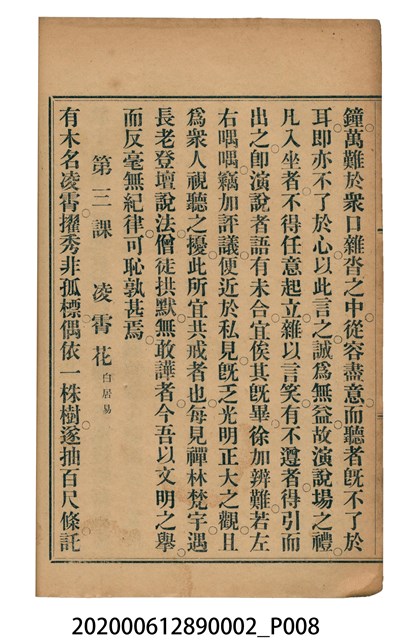 鐘萬難於衆口雜沓之中從容盡意而聽者旣不了於
耳卽亦不了於心以此言之誠爲無益故演說場之禮
凡入坐者不得任意起立雜以言笑有不遵者得引而
出之卽演說者語有未合宜俟其旣畢徐加辨難若左
右喁喁竊加評議便近於私見旣乏光明正大之觀且
爲衆人視聽之擾此所宜共戒者也每見禪林梵宇遇
長老登壇說法僧徒拱默無敢譁者今吾以文明之舉
而反毫無紀律可恥孰甚焉
第三課 凌霄花 白居易
有木名凌霄擢秀非孤標偶依一株樹遂抽百尺條託
202000612890002_P008